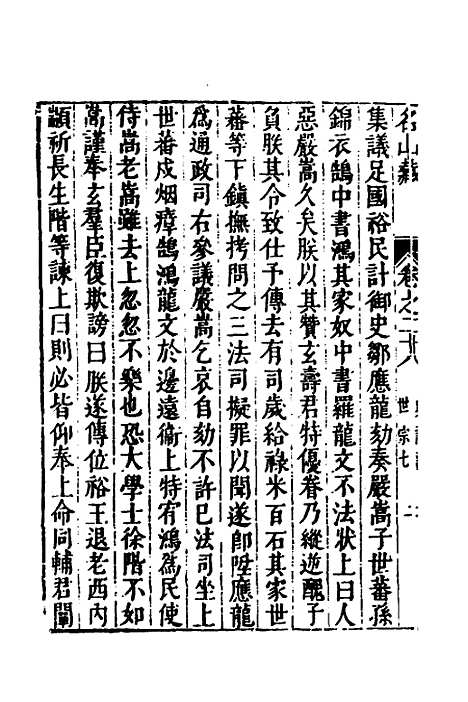 名山藏 卷之二十八 世宗七
集議足國裕民計御史鄒應龍劾奏嚴嵩子世蕃孫
錦衣鵠中書鴻其家奴中書羅龍文不法狀上曰人
惡嚴嵩久矣朕以其贊玄壽君特優眷乃縱逆醜子
負朕其令致仕予傳去有司歲給祿米百石其家世
蕃等下鎮撫拷問之三法司擬罪以聞遂即陞應龍
爲通政司右參議嚴嵩乞哀自劾不許巳法司坐上
世蕃戍烟瘴鵠鴻龍文於邊遠衞上特宥鴻爲民使
侍嵩老嵩雖去上忽忽不樂也恐大學士徐階不如
嵩謹奉玄羣臣復欺謗曰朕遂傳位裕王退老西內
顓祈長生階等諫上曰則必皆仰奉上命同輔君闡